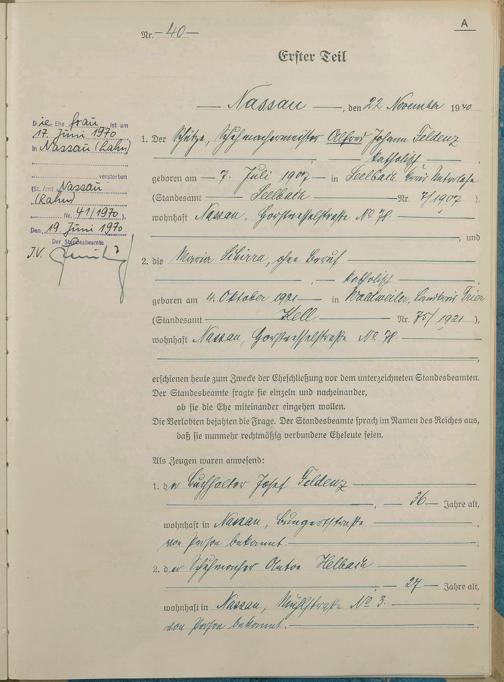 A
Nr. 40
Erster Teil
Nassau, den 22 November 1940.
1. Der Schütze, Schuhmachermeister Alfons Johann Feldenz
katholisch
geboren am 7. Juli 1907 in Seelbach
(Standesamt Seelbach Nr. 7/1907)
wohnhaft Nassau, Horstwesselstraße No 78
, und
2. die Maria Sibirra, ohne Beruf
katholisch
geboren am 4. Oktober 1921 in Waldweiler, Landkreis Trier
(Standesamt Kell Nr. 75/1921)
wohnhaft Nassau, Horstwesselstraße No 78
erschienen heute zum Zwecke der Eheschließung vor dem unterzeichneten Standesbeamten.
Der Standesbeamte fragte sie einzeln und nacheinander,
ob sie die Ehe miteinander eingehen wollen.
Die Verlobten bejahten die Frage. Der Standesbeamte sprach im Namen des Reiches aus,
daß sie nunmehr rechtmäßig verbundene Eheleute seien.
Als Zeugen waren anwesend:
1. der Buchhalter Josef Feldenz
36 Jahre alt,
wohnhaft in Nassau,
von Person bekannt.
2. der Schuhmacher Anton Helbach
27 Jahre alt,
wohnhaft in Nassau, No 3.
von Person bekannt.
Die Ehefrau ist am
17. Juni 1970
in Nassau (Lahn)
verstorben
(St. Amt Nassau
(Lahn)
Nr. 41/1970).
Den 19. Juni 1970
Der Standesbeamte
I.V.